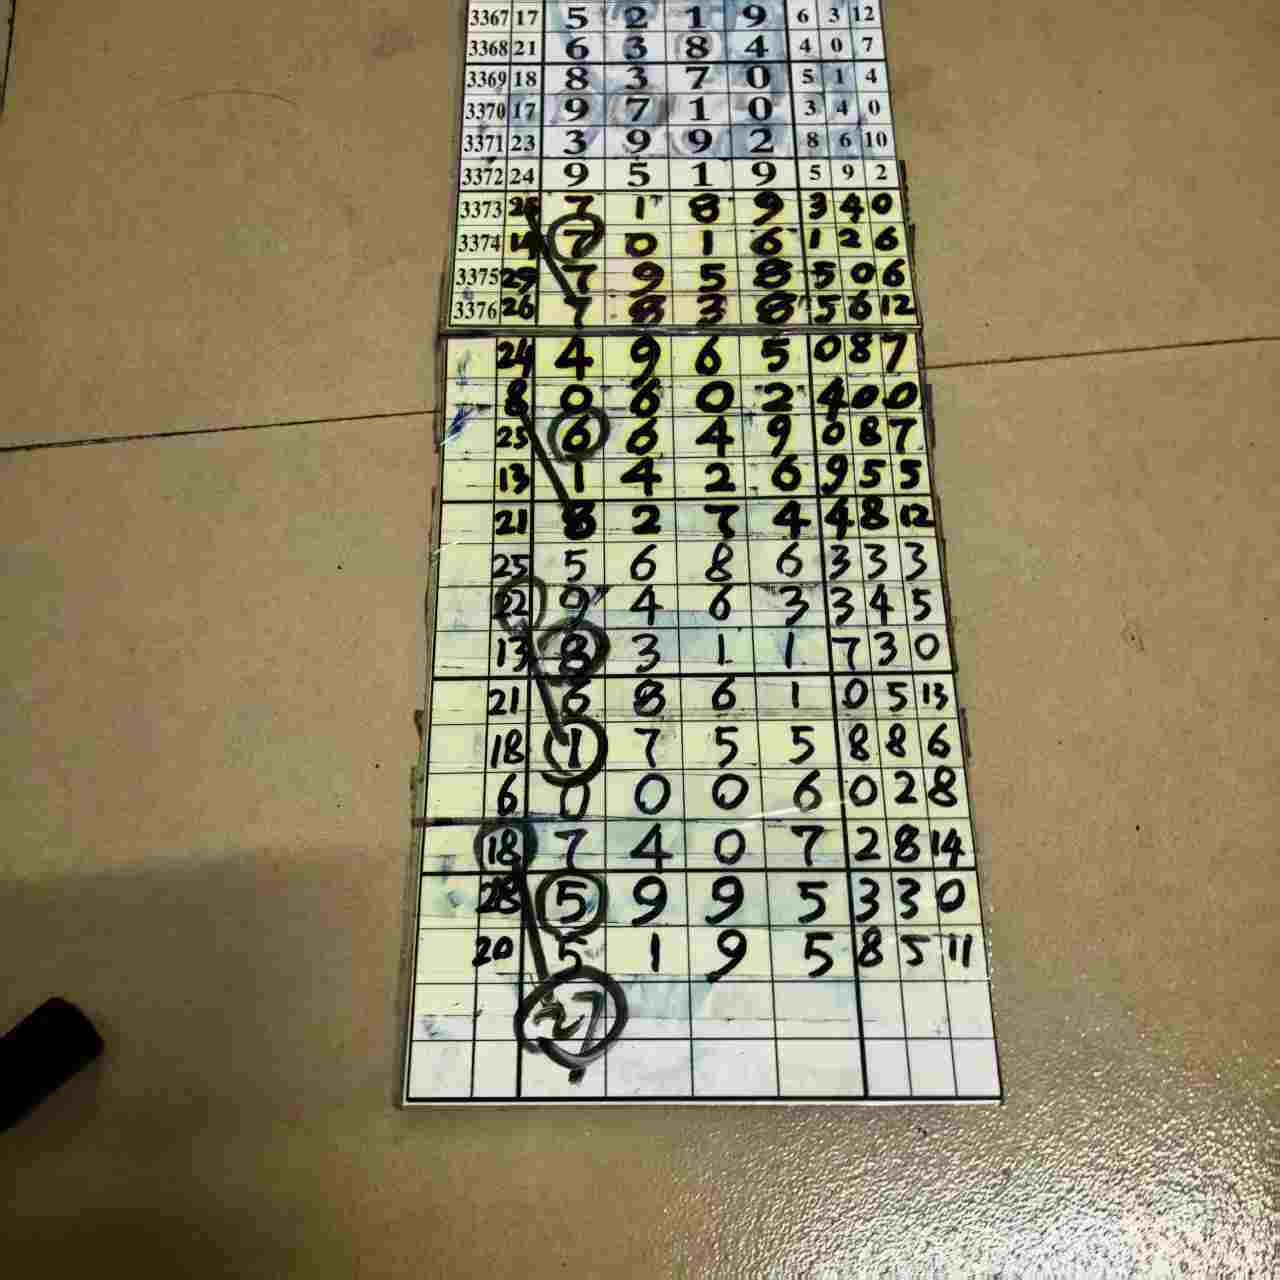 3367 17 5 2 1 9 6 3 12
3368 21 6 3 8 4 4 0 7
3369 18 8 3 7 0 5 1 4
3370 17 9 7 1 0 3 4 0
3371 23 3 9 9 2 8 6 10
3372 24 9 5 1 9 5 9 2
3373 25 7 1 8 9 3 4 0
3374 14 7 0 1 6 1 2 6
3375 29 7 9 5 8 5 0 6
3376 26 7 8 3 8 5 6 12
24 4 9 6 5 0 8 7
8 0 6 0 2 4 0 0
25 6 6 4 9 0 8 7
13 1 4 2 6 9 5 5
21 8 2 7 4 4 8 12
25 5 6 8 6 3 3 3
22 9 4 6 3 3 4 5
13 8 3 1 1 7 3 0
21 6 8 6 1 0 5 13
18 1 7 5 5 8 8 6
6 0 0 0 6 0 2 8
18 7 4 0 7 2 8 14
28 5 9 9 5 3 3 0
20 5 1 9 5 8 5 11
27